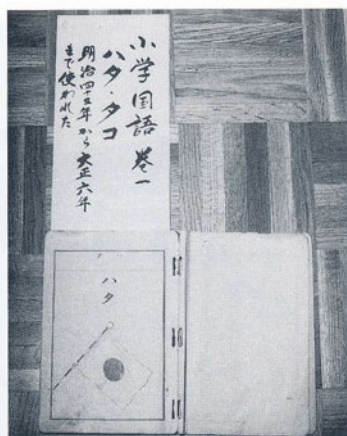 小学国語 巻一
ハタ・タコ
明治四十五年から大正六年
まで使われた
ハタ